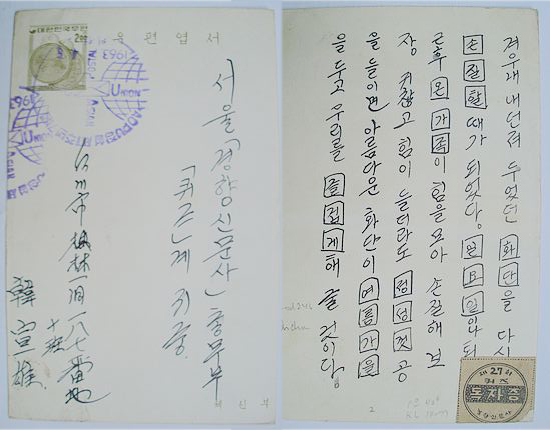 우편엽서
대한민국우표
1963
UNION
ASIAN
서울「경향신문사」총무부
「퀴즈」계 귀중
川市 林 一八七番地
韓宣雄
체신부
겨우내 내던져 두었던 화단을 다시
손질할 때가 되었다. 일요일
온가족이 힘을 모아 손질해 보
장 귀찮고 힘이 들더라도 정성껏 공
을 들이면 아름다운 화단이 여름가을
을 두고 우리를 즐겁게 해 줄 것이다.
제27회
퀴즈
독자증